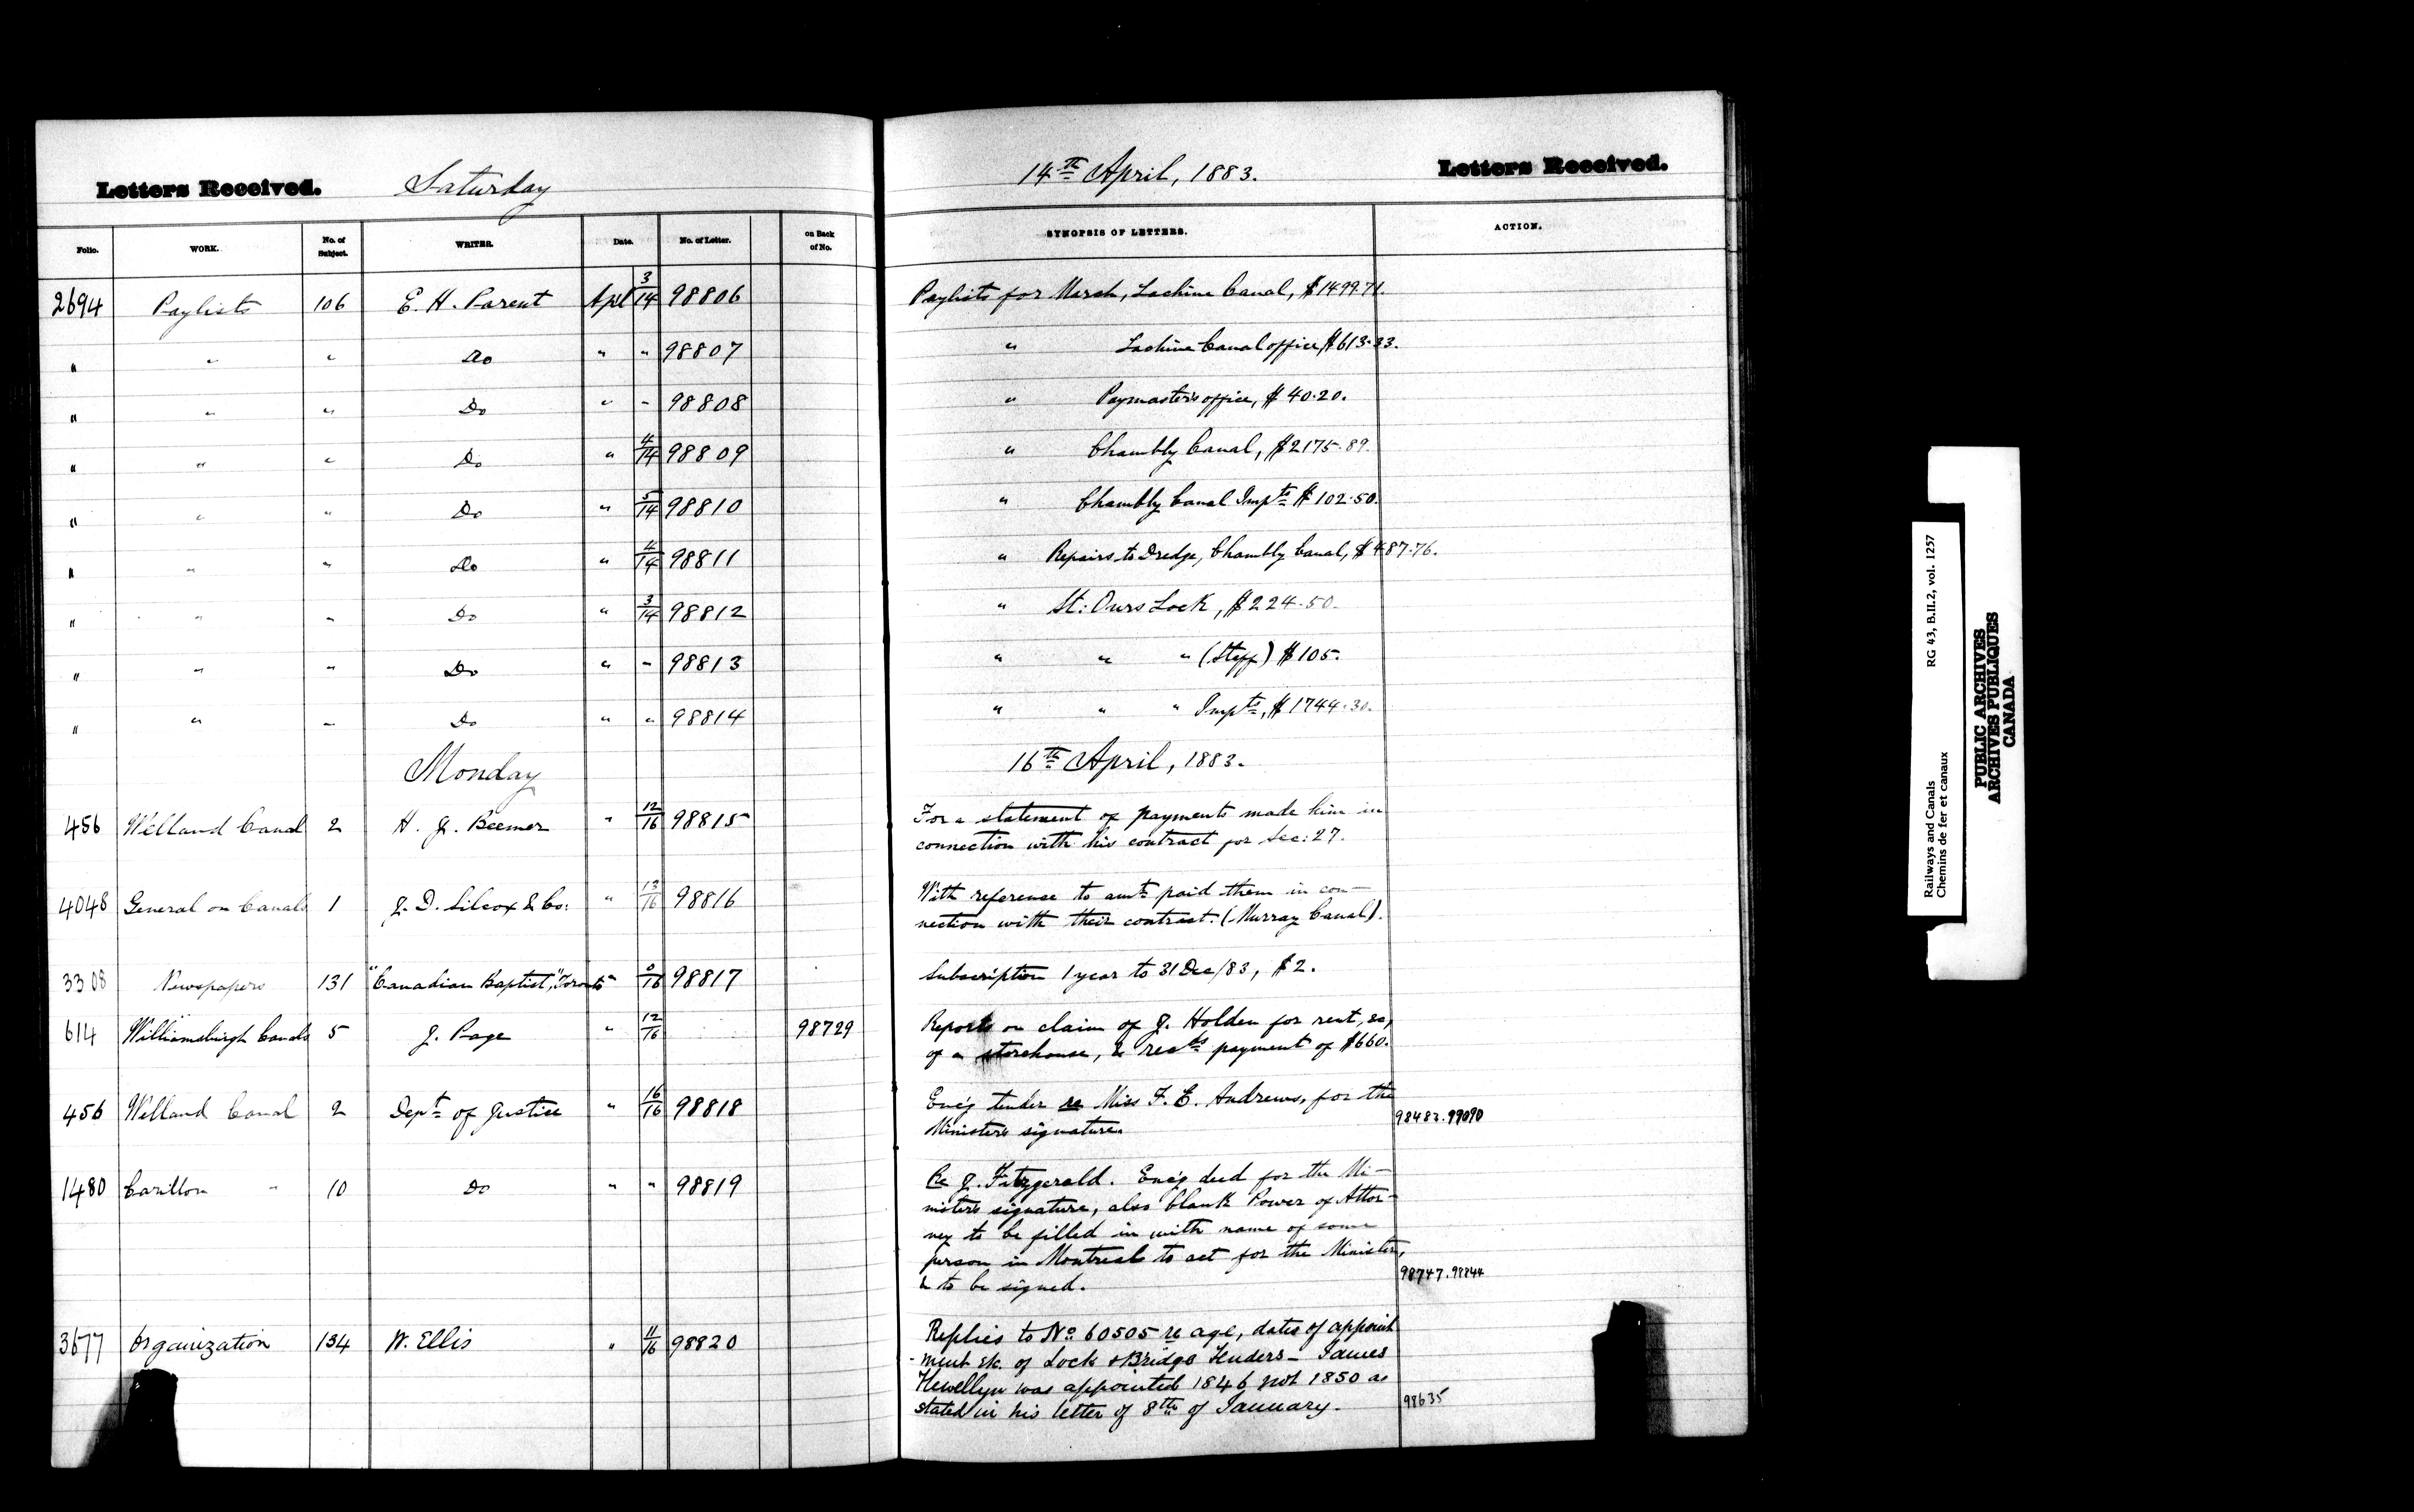 Letters Received. Saturday 14th April, 1883. Letters Received.
Folio. WORK. No. of Subject. WRITER. Date. No. of Letter. on Back of No. SYNOPSIS OF LETTERS. ACTION.
2694 Paylists 106 E. H. Parent Apl 3/14 98806 Paylists for March, Lachine Canal, $1499.71.
" " " Do " " 98807 " Lachine Canal office $613.33.
" " " Do " " 98808 " Paymaster's office, $40.20.
" " " Do " 4/14 98809 " Chambly Canal, $2175.89.
" " " Do " 5/14 98810 " Chambly Canal Impts $102.50.
" " " Do " 4/14 98811 " Repairs to Dredge, Chambly Canal, $487.76.
" " " Do " 3/14 98812 " St: Ours Lock, $224.50.
" " " Do " " 98813 " " " (Staff) $105.
" " " Do " " 98814 " " " Impts, $1744.30.
Monday 16th April, 1883.
456 Welland Canal 2 H. J. Beemer " 12/16 98815 For a statement of payments made him in
connection with his contract for Sec: 27.
4048 General on Canals 1 J. D. Silcox & Co: " 13/16 98816 With reference to amts paid them in con-
nection with their contract. (Murray Canal).
3308 Newspapers 131 "Canadian Baptist," Toronto " 0/16 98817 Subscription 1 year to 31 Dec/83, $2.
614 Williamsburgh Canals 5 J. Page " 12/16 98729 Reports on claim of J. Holden for rent, &c,
of a storehouse, & recds payment of $660.
456 Welland Canal 2 Dept of Justice " 16/16 98818 Enc'g tender re Miss F. E. Andrews, for the
Minister's signature. 98482.99090
1480 Carillon " 10 Do " " 98819 Re J. Fitzgerald. Enc'g deed for the Mi-
nister's signature, also blank Power of Attor-
ney to be filled in with name of some
person in Montreal to act for the Minister,
& to be signed. 98747.98844
3677 Organization 134 W. Ellis " 11/16 98820 Replies to No 60505 re age, dates of appoint
-ment etc. of Lock & Bridge Tenders - James
Hewellyn was appointed 1846 not 1850 as
stated in his letter of 8th of January. 98635
Railways and Canals RG 43, B.II.2, vol. 1257
Chemins de fer et canaux
PUBLIC ARCHIVES
ARCHIVES PUBLIQUES
CANADA